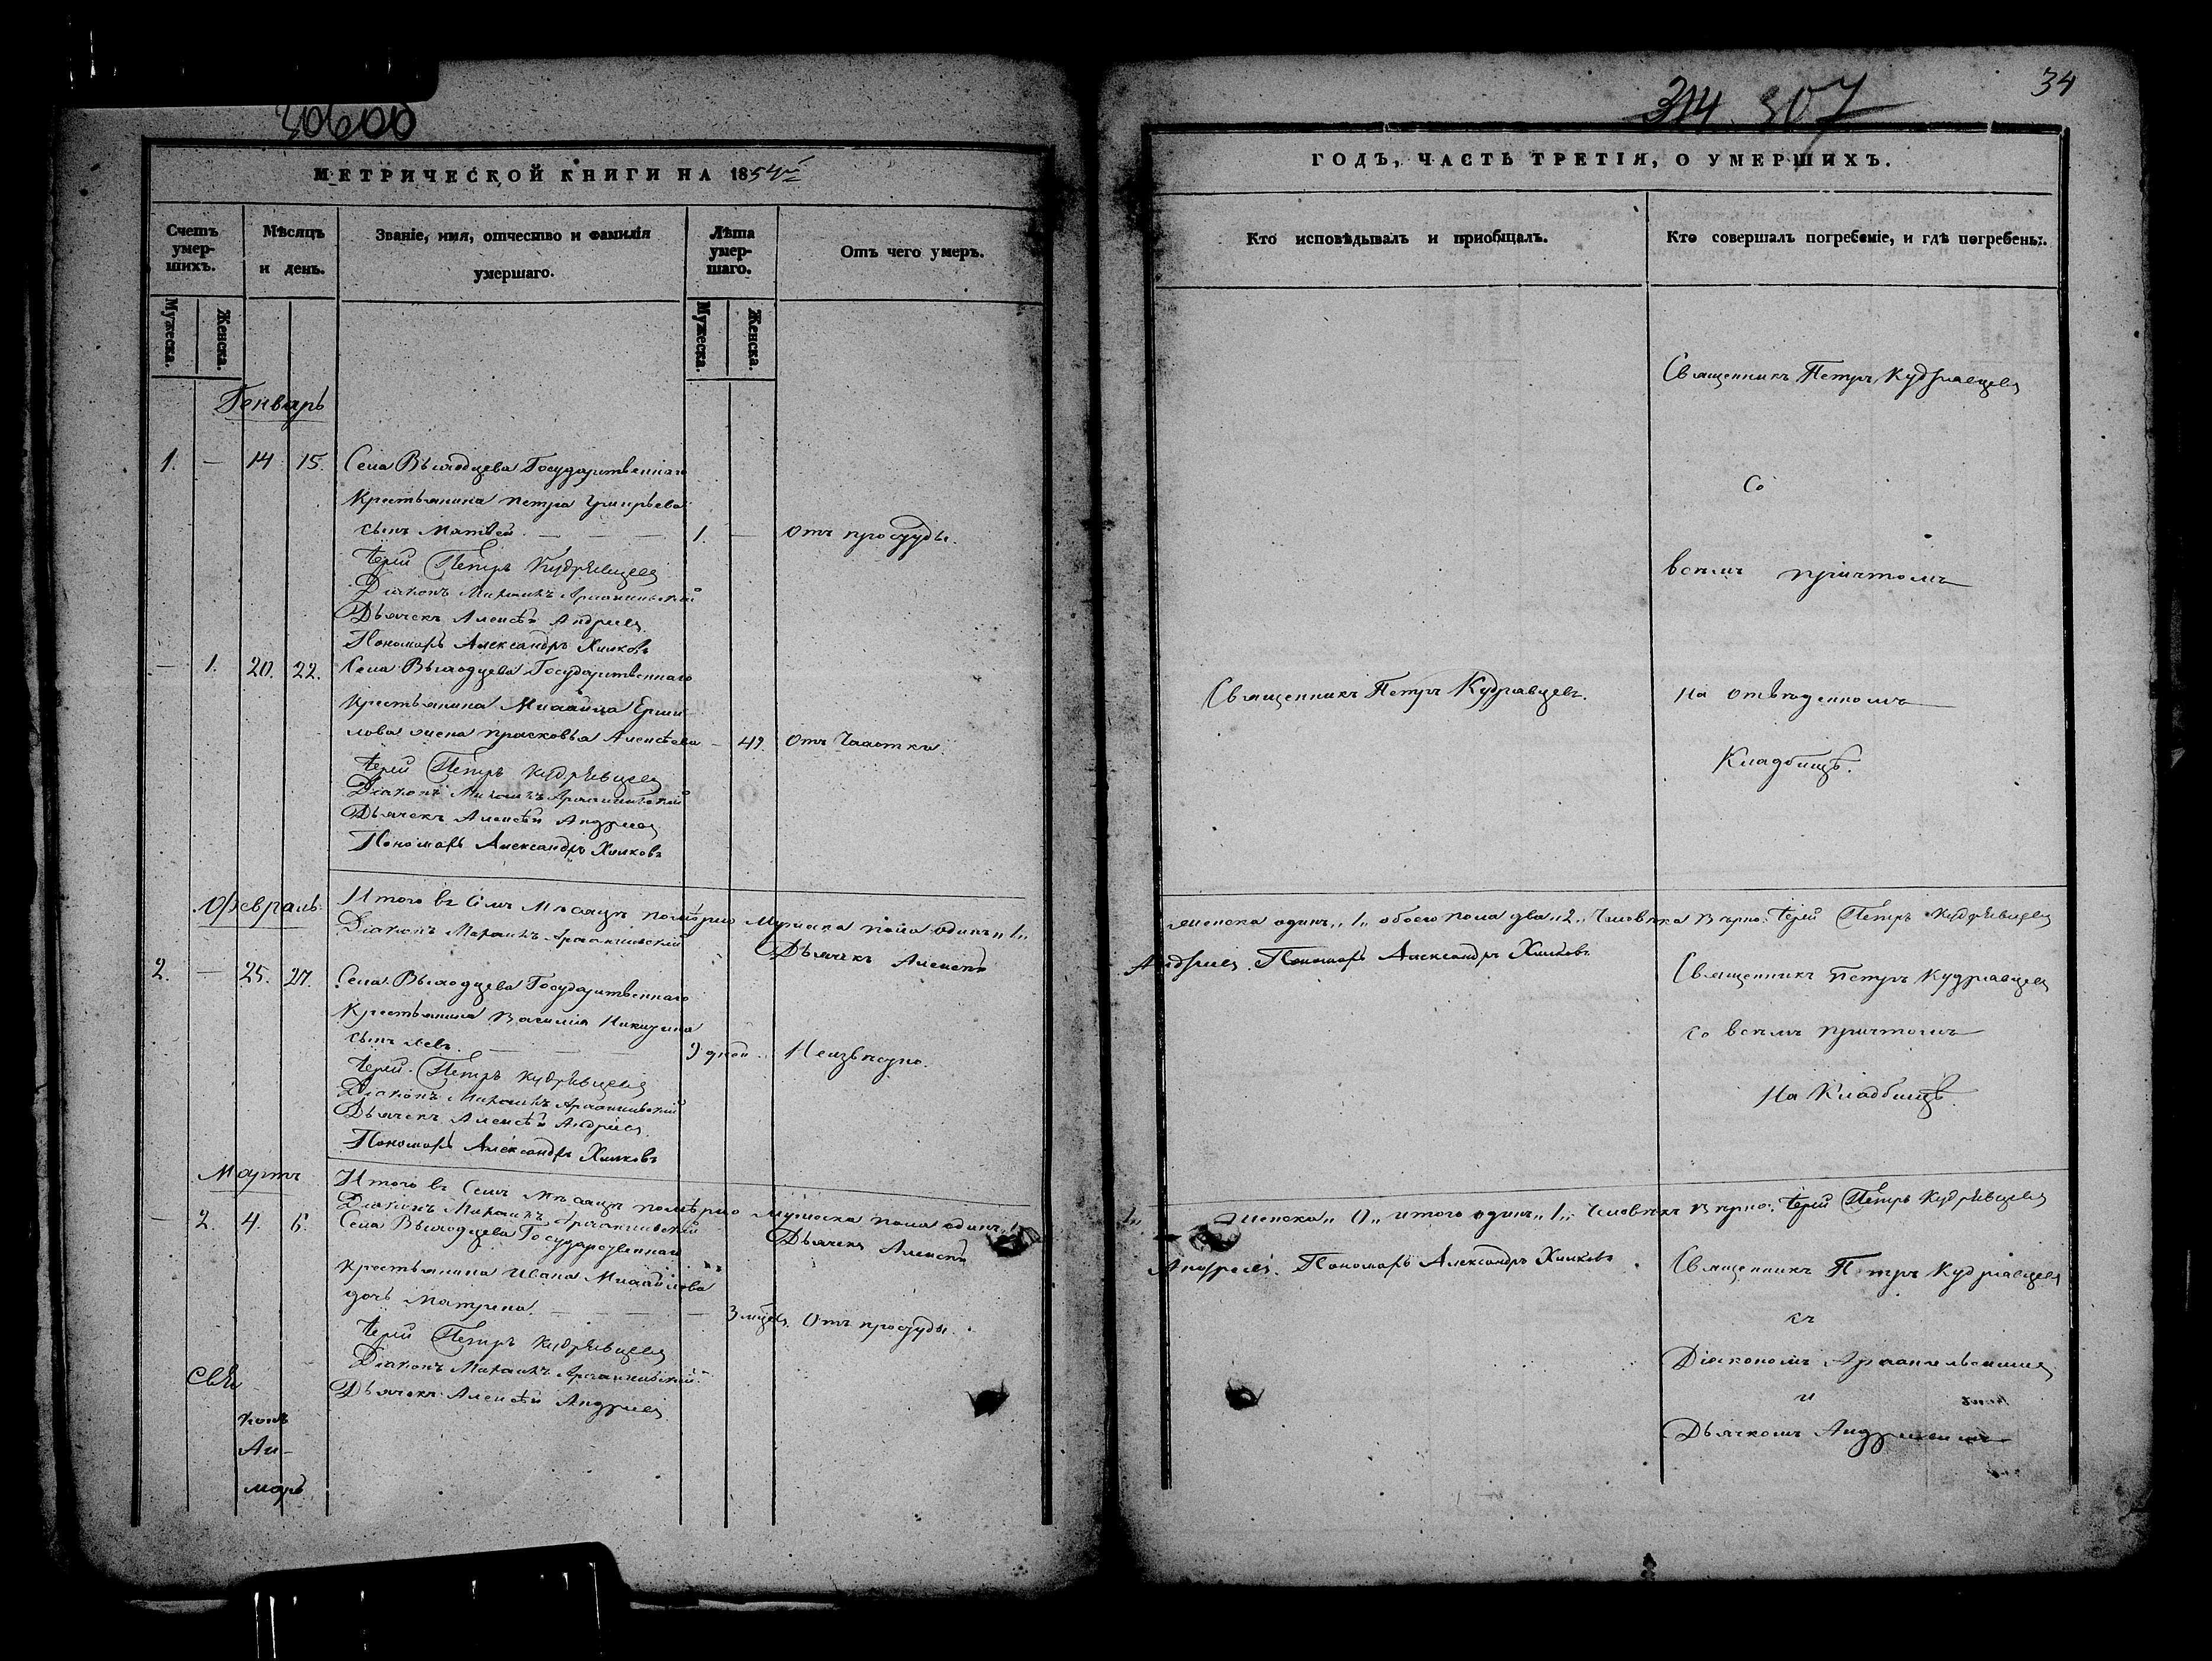 30600
314 307
34
МЕТРИЧЕСКОЙ КНИГИ НА 1854й
ГОДЪ, ЧАСТЬ ТРЕТІЯ, О УМЕРШИХЪ.
Счетъ умер-шихъ.
Мужеска.
Женска.
Мѣсяцъ и день.
Званіе, имя, отчество и фамилія умершаго.
Лѣта умер-шаго.
Мужеска.
Женска.
Отъ чего умеръ.
Кто исповѣдывалъ и приобщалъ.
Кто совершалъ погребеніе, и гдѣ погребены.
Генварь
1. — 14 15. Села Выходцева Государственнаго
Крестьянина Петра Григорьева
сынъ Матвей. — — — 1. — Отъ простуды.
Іерей Петръ Кудрявцевъ
Діаконъ Михаилъ Архангельскій
Дьячекъ Алексѣй Андреевъ
Пономарь Александръ Хилковъ
Священникъ Петръ Кудрявцевъ
Со
всемъ причтомъ
— 1. 20. 22. Села Выходцева Государственнаго
Крестьянина Михаила Ерми
лова жена Прасковья Алексѣева — 49. Отъ Чахотки.
Іерей Петръ Кудрявцевъ
Діаконъ Михаилъ Архангельскій
Дьячекъ Алексѣй Андреевъ
Пономарь Александръ Хилковъ
Священникъ Петръ Кудрявцевъ.
На отведенномъ
Кладбищѣ.
Февраль.
Итого въ Семъ Мѣсяцѣ померло Мужеска пола одинъ „1„ женска одинъ „1„ обоего пола два „2„ Человѣка Вѣрно: Іерей Петръ Кудрявцевъ
Діаконъ Михаилъ Архангельскій Дьячекъ Алексѣй Андреевъ. Пономарь Александръ Хилковъ
2. — 25. 27. Села Выходцева Государственнаго
Крестьянина Василія Никитина
сынъ Левъ. — — 9 дней. Неизвѣстно.
Іерей Петръ Кудрявцевъ
Діаконъ Михаилъ Архангельскій
Дьячекъ Алексѣй Андреевъ
Пономарь Александръ Хилковъ
Священникъ Петръ Кудрявцевъ
со всемъ причтомъ
На Кладбищѣ.
Мартъ
Итого въ Семъ Мѣсяцѣ померло Мужеска пола одинъ „1„ Женска „0„ итого одинъ „1„ Человѣкъ Вѣрно: Іерей Петръ Кудрявцевъ
Діаконъ Михаилъ Архангельскій Дьячекъ Алексѣй Андреевъ. Пономарь Александръ Хилковъ
— 2. 4. 6. Села Выходцева Государственнаго
Крестьянина Ивана Михайлова
дочь Матрена. — — — 3 мѣсяц. Отъ простуды.
Іерей Петръ Кудрявцевъ
Діаконъ Михаилъ Архангельскій
Дьячекъ Алексѣй Андреевъ
Священникъ Петръ Кудрявцевъ
съ
Діакономъ Архангельскимъ
и
Дьячкомъ Андреевымъ